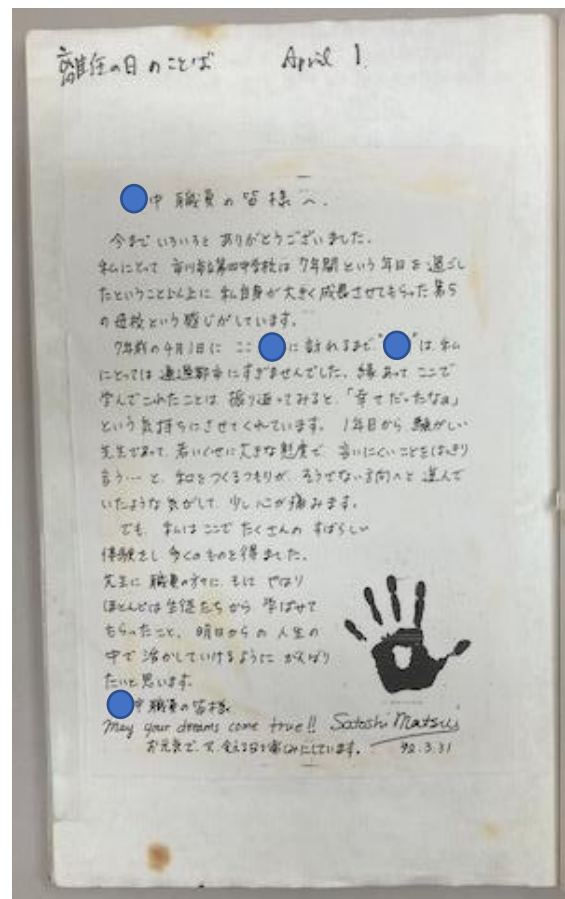 離任の日のことば April 1.
中 職員の皆様へ.
今まで いろいろと ありがとうございました.
私にとって 市川市立第四中学校は 7年間という年日を過ごし
たということ以上に 私自身が大きく成長させてもらった 第5
の母校という感じがしています.
7年前の4月1日に ここ に訪れるまで" "は 私
にとっては 通過都市にすぎませんでした. 縁あって ここで
学んでこれたことは 振り返ってみると 「幸せだったなa」
という気持ちにさせてくれています. 1年目から 騒がしい
先生であって 若いくせに 大きな態度で 言いにくいことをはっきり
言う… と 和をつくるつもりが そうでない方向へと 進んで
いたような気がして 少し心が痛みます.
でも 私は ここで たくさんの すばらしい
体験をし 多くのものを得ました.
先生に 職員の方々に そして やはり
ほとんどは 生徒たちから 学ばせて
もらったこと. 明日からの人生の
中で 活かしていけるように がんばり
たいと思います.
中 職員の皆様.
May your dreams come true!! Satoshi Matsui
お元気で. 又 会える日を楽しみにしています. 92.3.31